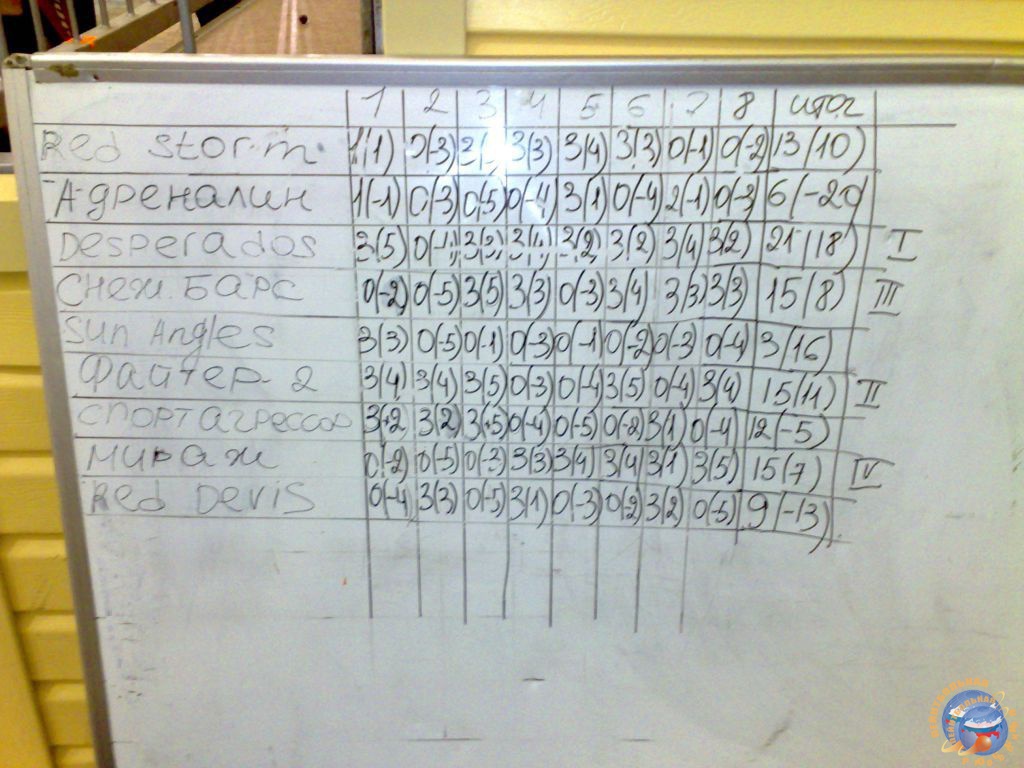 1 2 3 4 5 6 7 8 итог
Red storm. 1(1) 0(-3) 3(3) 3(4) 3(3) 0(-1) 0(-2) 13(10)
Адреналин 1(-1) 0(-3) 0(-5) 0(-4) 3(1) 0(-4) 2(-1) 0(-3) 6(-20)
Desperados 3(5) 3(2) 3(2) 3(4) 3(2) 21(18) I
Снеж. Барс 0(-2) 0(-5) 3(5) 3(3) 0(-3) 3(4) 3(3) 3(3) 15(8) III
Sun Angles 3(3) 0(-5) 0(-1) 0(-3) 0(-1) 0(-2) 0(-3) 0(-4) 3(16)
Файтер-2 3(4) 3(4) 3(5) 0(-3) 0(-4) 3(5) 0(-4) 3(4) 15(11) II
Спорт агрессор 3+2 3(2) 3(+5) 0(-4) 0(-5) 0(-2) 3(1) 0(-4) 12(-5)
мираж 0(-2) 0(-5) 0(-3) 3(3) 3(4) 3(4) 3(1 3(5) 15(7) IV
Red Devis 0(-4) 3(3) 0(-5) 3(1) 0(-3) 0(-2 3(2) 0(-5) 9(-13)